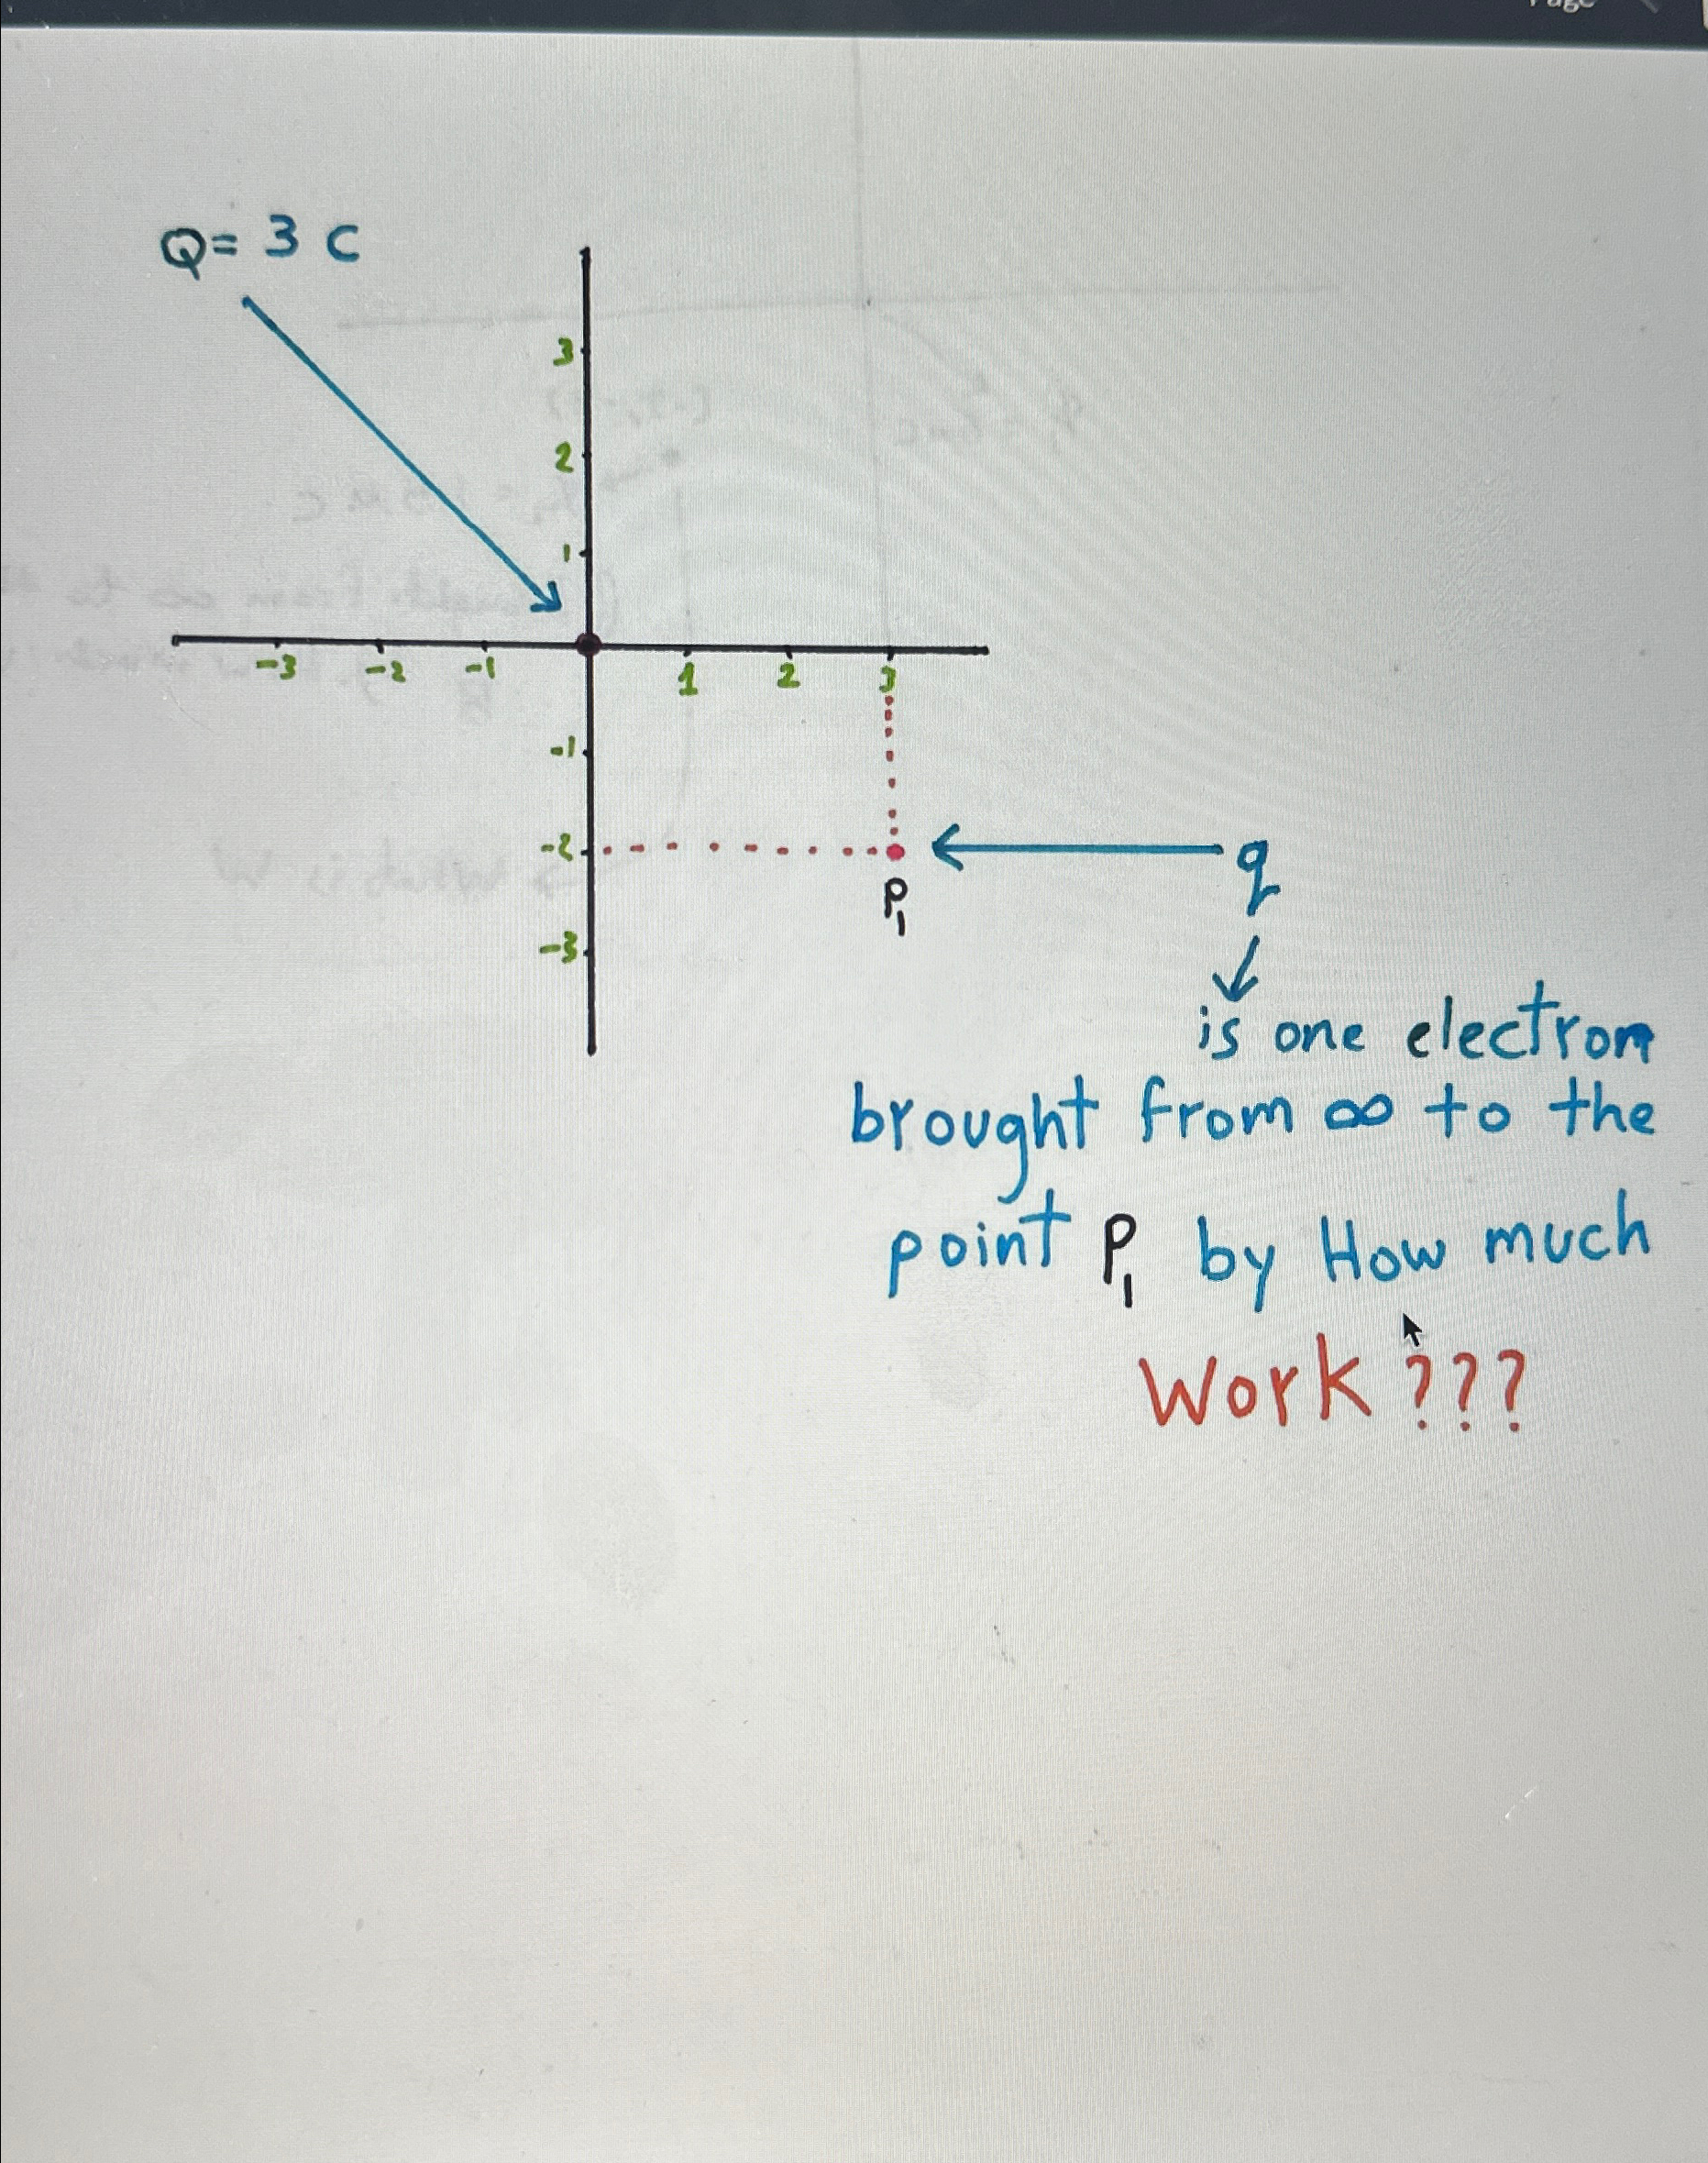 Q= 3 C
3
2
1
-3 -2 -1 1 2 3
-1
-2
q
P1
-3
is one electron
brought from ∞ to the
point P1 by How much
Work ???